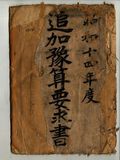 昭和十四年度
追加豫算要求書